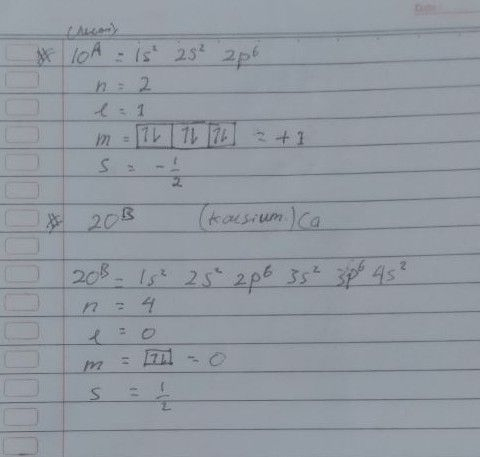 Date
(Neon)
* 10A = 1s² 2s² 2p⁶
n = 2
l = 1
m = [1↓][1↓][1↓] = +1
s = -1/2
* 20B (kalsium) Ca
20B = 1s² 2s² 2p⁶ 3s² 3p⁶ 4s²
n = 4
l = 0
m = [1↓] = 0
s = 1/2